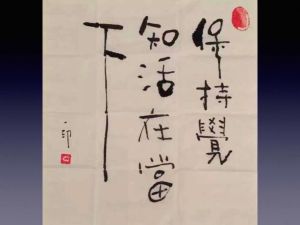 保持覺
知活在當
下
一印